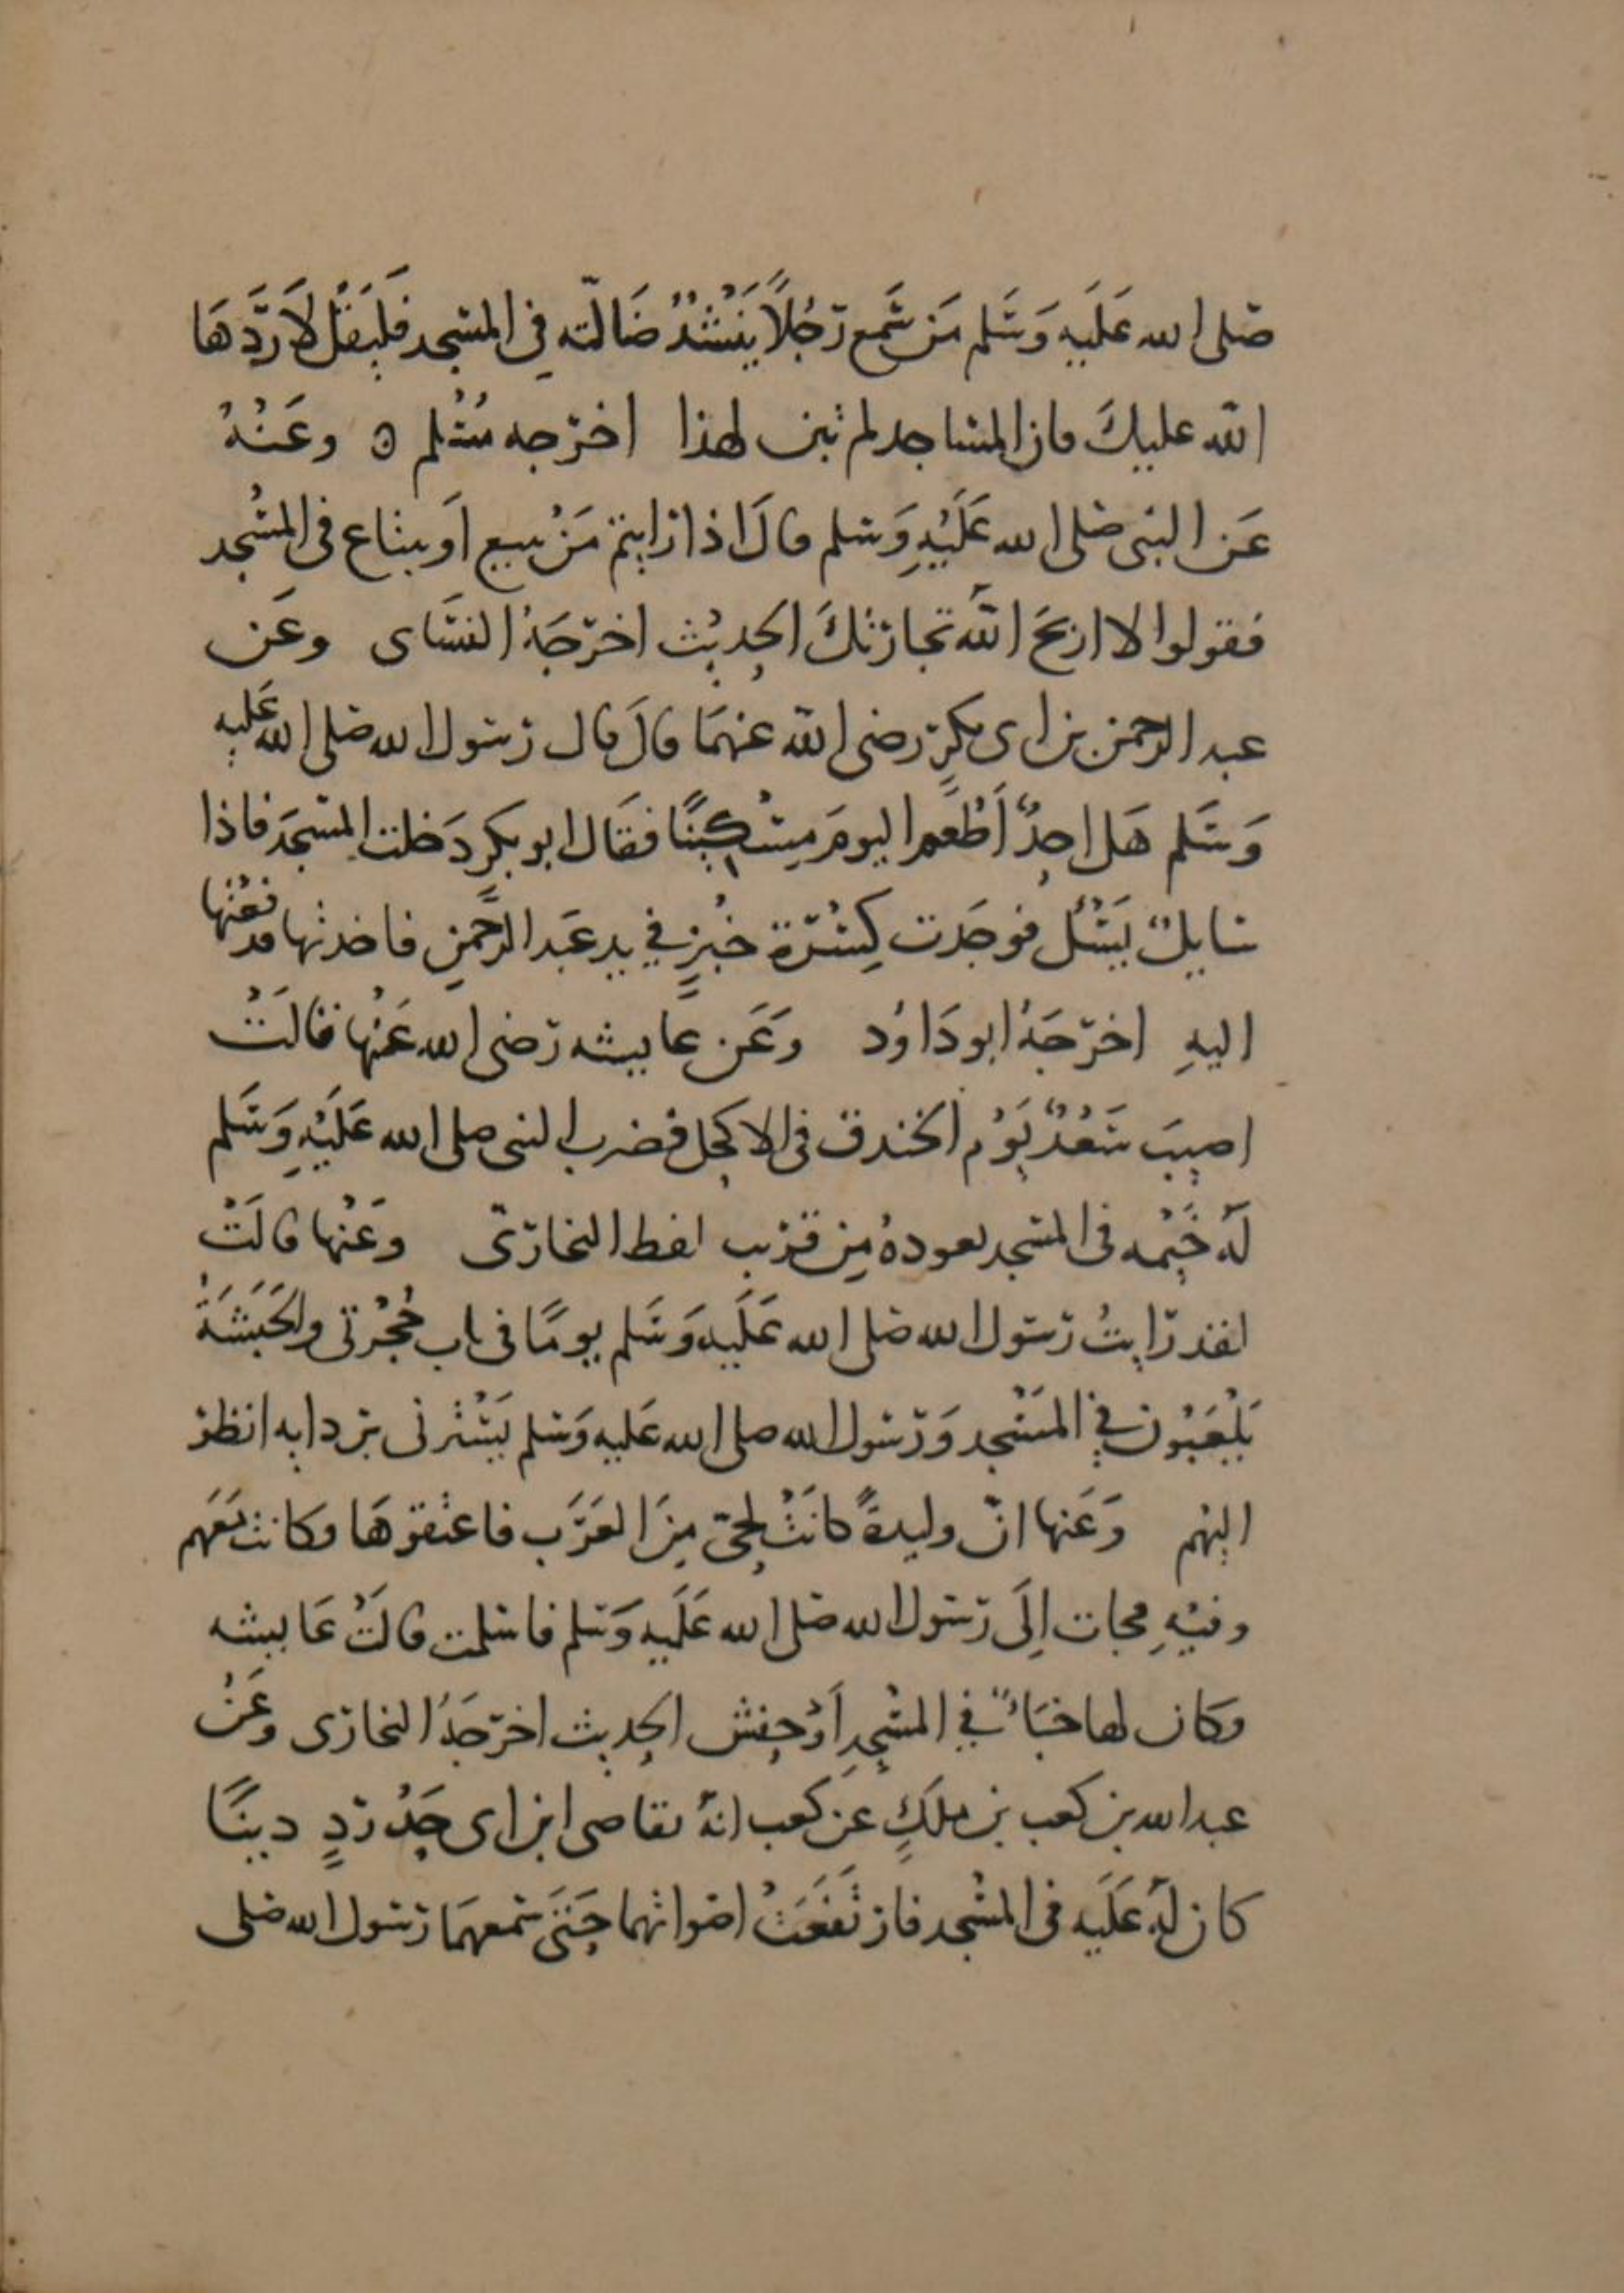 صلى الله عَلَيه وَسَلم مَن سَمع رَجُلًا يَنْشُدُ ضَالّته فِي المسجد فَليَقُل لَا رَدَّهَا
الله عليكَ فان المساجد لم تبن لهذا اخرجه مُسْلم ه وعَنْهُ
عَن النبى صلى الله عَلَيْهِ وَسلم قالَ اذا رايتم مَنْ يبيع اَو يبتاع فى المسْجد
فقولوا لا اربحَ اللهُ تجارتكَ الحديث اخرَجَهُ النسَاى وعَن
عبد الرحمن بن ابى بكرٍ رضى الله عنهمَا قالَ قال رسول الله صلى الله عَليه
وَسَلم هَل احدٌ اَطْعَم اليومَ مِسْكِينًا فقَال ابو بكرٍ دَخلت المسْجدَ فاذا
سايلٌ يَسْئل فوجَدت كِسْرة خُبْزٍ في يد عَبد الرَّحمنِ فاخذتها فدفعْتها
اليهِ اخرَجَهُ ابو دَاوُد وَعَن عَايشه رَضى الله عَنْها قالَتْ
اصيبَ سَعْدٌ يَوْم الخندق فى الاكحل فضرب النبى صلى الله عَلَيْهِ وَسَلم
لَهُ خَيْمه فى المسجد يعودهُ مِن قرْب لفظ البخارى وعَنْها قالَتْ
لقد رَايتُ رَسول الله صلى الله عَلَيه وَسَلم يومًا فى باب حُجْرتى والحَبَشَةُ
يَلْعَبُون فِي المسْجد وَرَسول الله صلى الله عَليه وَسلم يَسْترنى بردايه انظر
اليْهم وَعَنها انّ وليدةً كانَتْ لحىّ مِنَ العَرَب فاعتقوهَا فكانت مَعَهم
وفيْهِ فجات اِلَى رَسول الله صلى الله عَلَيه وَسلم فاسلمت قالَتْ عَايشه
فكان لها خبَاءٌ في المسْجدِ اَوْ حِفش الحديث اخرَجَهُ البخارى وعَنْ
عبد الله بن كعب بن ملكٍ عَن كعب انهُ تقاصى ابن ابى حَدْرَدٍ دينًا
كان لَهُ عَلَيه فى المسْجد فارتفَعَتْ اصواتهما حَتىَ سَمعهمَا رَسول الله صلى